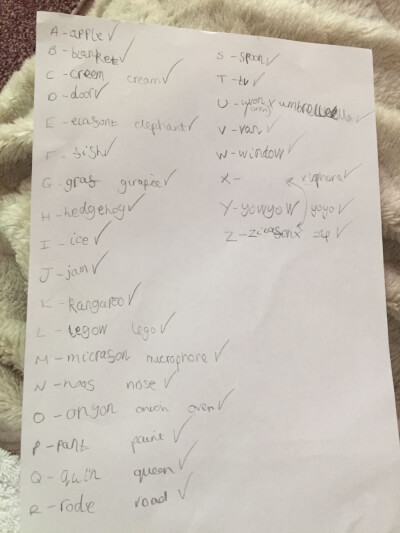 A - apple ✓
B - blanket ✓
C - creem cream ✓
D - door ✓
E - elasont elephant ✓
F - fish ✓
G - graf ✓
H - hedgehog ✓
I - ice ✓
J - jam ✓
K - kangaroo ✓
L - legow lego ✓
M - micrason microphone ✓
N - noos nose ✓
O - onyon onion oven ✓
P - pant paint ✓
Q - quin queen ✓
R - rode road ✓
S - spoon ✓
T - tv ✓
U - umbrella ✓
V - van ✓
W - window ✓
X - ✓
Y - yowyow yoyo ✓
Z - zip ✓